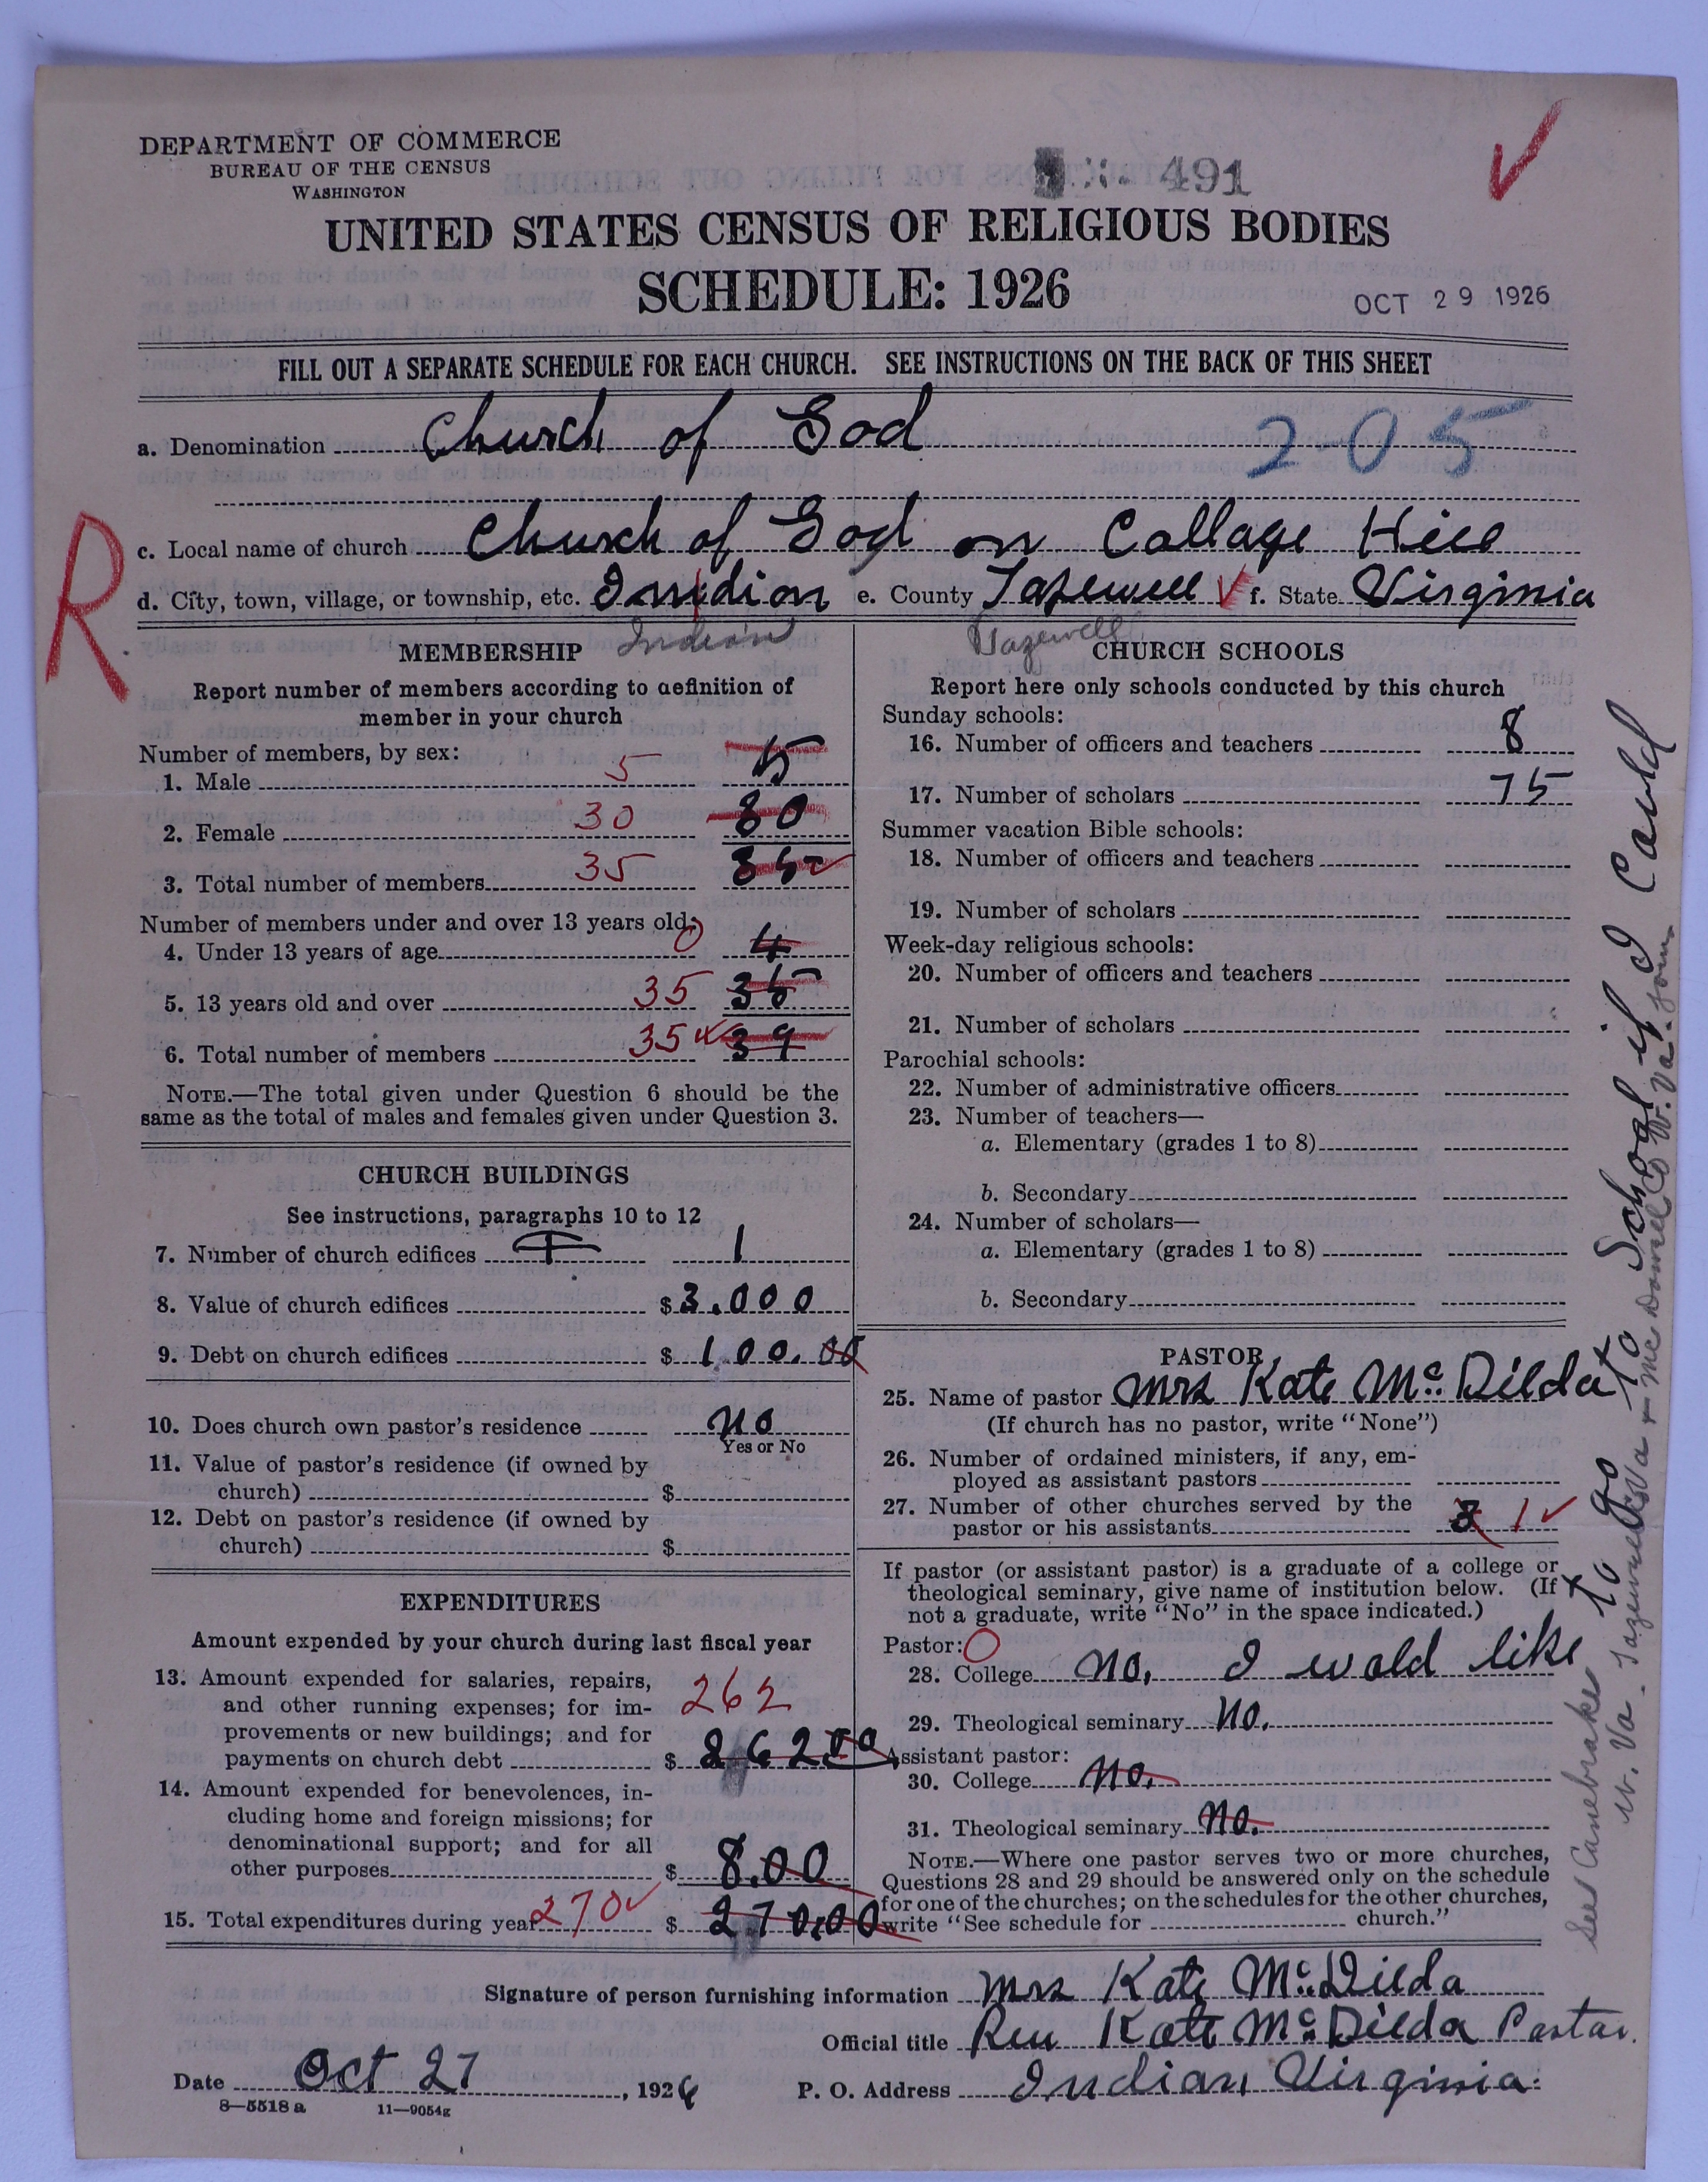 DEPARTMENT OF COMMERCE
BUREAU OF THE CENSUS
WASHINGTON
491
UNITED STATES CENSUS OF RELIGIOUS BODIES
SCHEDULE: 1926
OCT 29 1926
FILL OUT A SEPARATE SCHEDULE FOR EACH CHURCH. SEE INSTRUCTIONS ON THE BACK OF THIS SHEET
a. Denomination Church of God 2-05
R
c. Local name of church Church of God on Collage Hill
d. City, town, village, or township, etc. Indion e. County Tazewell f. State Virginia
Indian Tazewell
MEMBERSHIP
Report number of members according to definition of
member in your church
Number of members, by sex:
1. Male 5 5
2. Female 30 80
3. Total number of members 35 85
Number of members under and over 13 years old:
4. Under 13 years of age 0 4
5. 13 years old and over 35 35
6. Total number of members 35 39
NOTE.—The total given under Question 6 should be the
same as the total of males and females given under Question 3.
CHURCH BUILDINGS
See instructions, paragraphs 10 to 12
7. Number of church edifices 1
8. Value of church edifices $ 3.000
9. Debt on church edifices $ 100.00
10. Does church own pastor's residence no
Yes or No
11. Value of pastor's residence (if owned by
church) $
12. Debt on pastor's residence (if owned by
church) $
EXPENDITURES
Amount expended by your church during last fiscal year
13. Amount expended for salaries, repairs,
and other running expenses; for im- 262
provements or new buildings; and for
payments on church debt $ 262 00
14. Amount expended for benevolences, in-
cluding home and foreign missions; for
denominational support; and for all
other purposes $ 8.00
15. Total expenditures during year 270 $ 270.00
CHURCH SCHOOLS
Report here only schools conducted by this church
Sunday schools:
16. Number of officers and teachers 8
17. Number of scholars 75
Summer vacation Bible schools:
18. Number of officers and teachers
19. Number of scholars
Week-day religious schools:
20. Number of officers and teachers
21. Number of scholars
Parochial schools:
22. Number of administrative officers
23. Number of teachers—
a. Elementary (grades 1 to 8)
b. Secondary
24. Number of scholars—
a. Elementary (grades 1 to 8)
b. Secondary
PASTOR
25. Name of pastor Mrs Kate McDilda
(If church has no pastor, write "None")
26. Number of ordained ministers, if any, em-
ployed as assistant pastors
27. Number of other churches served by the
pastor or his assistants 1
If pastor (or assistant pastor) is a graduate of a college or
theological seminary, give name of institution below. (If
not a graduate, write "No" in the space indicated.)
Pastor: 0
28. College no. I wold like
to go to School if I Could
29. Theological seminary no.
Assistant pastor:
30. College no.
31. Theological seminary no.
NOTE.—Where one pastor serves two or more churches,
Questions 28 and 29 should be answered only on the schedule
for one of the churches; on the schedules for the other churches,
write "See schedule for church."
See Canebrake
W. Va.
Signature of person furnishing information Mrs Kate McDilda
Official title Rev Kate McDilda Pastor.
Date Oct 27, 1926 P. O. Address Indian Virginia.
8—5518 a 11—9054g